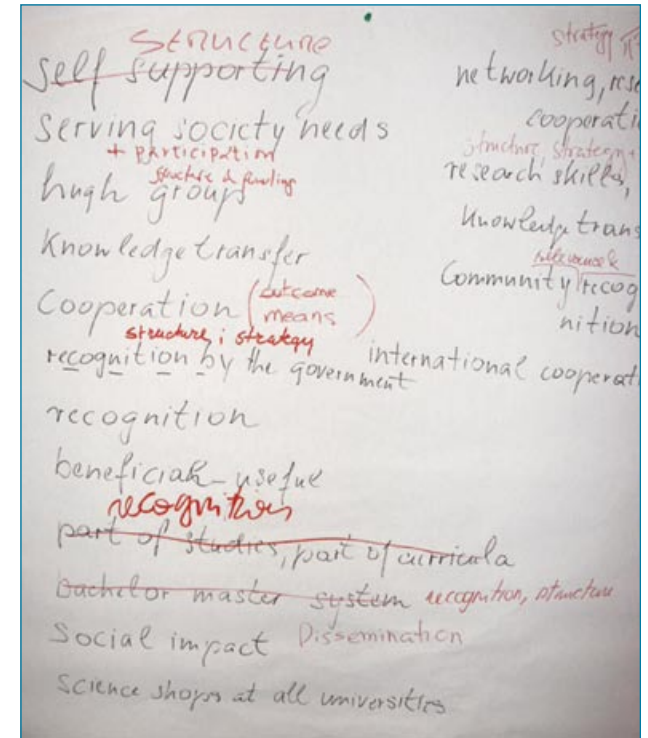 Structure
self supporting
serving society needs
+ participation
structure & funding
hugh groups
Knowledge transfer
Cooperation (outcome
means)
structure, strategy
recognition by the government
recognition
beneficial - useful
recognition
part of studies, part of curricula
bachelor master system recognition, structure
Social impact Dissemination
Science shops at all universities
strategy
networking, rese
cooperati
structure, strategy +
research skills,
Knowledge trans
relevance &
Community recog
nition
international cooperat